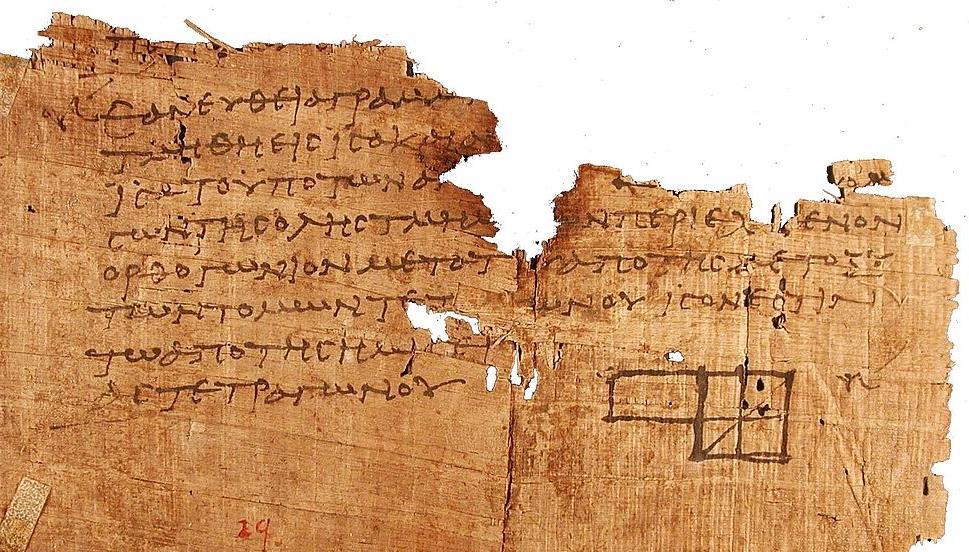 ΕΑΝ ΕΥΘΕΙΑ ΓΡΑΜΜ
ΤΜΗΘΗ ΕΙϹ ΙϹΑ Κ
ΙϹΑ ΤΟ ΥΠΟ ΤΩΝ ΑΝ
ΙϹΩΝ ΤΗϹ ΟΛΗϹ ΤΜΗΜ ΩΝ ΠΕΡΙΕΧ ΕΝΟΝ
ΟΡΘΟΓΩΝΙΟΝ ΜΕΤΑ Τ ΑΠΟ ΤΗϹ ΜΕΤΟΞΥ
ΤΩΝ ΤΟΜΩΝ ΤΕΤ ΩΝΟΥ ΙϹΟΝ ΕϹΤΙΝ
ΤΩ ΑΠΟ ΤΗϹ ΗΜΙ ΕΙ
ΑϹ ΤΕΤΡΑΓΩΝΟΥ
29